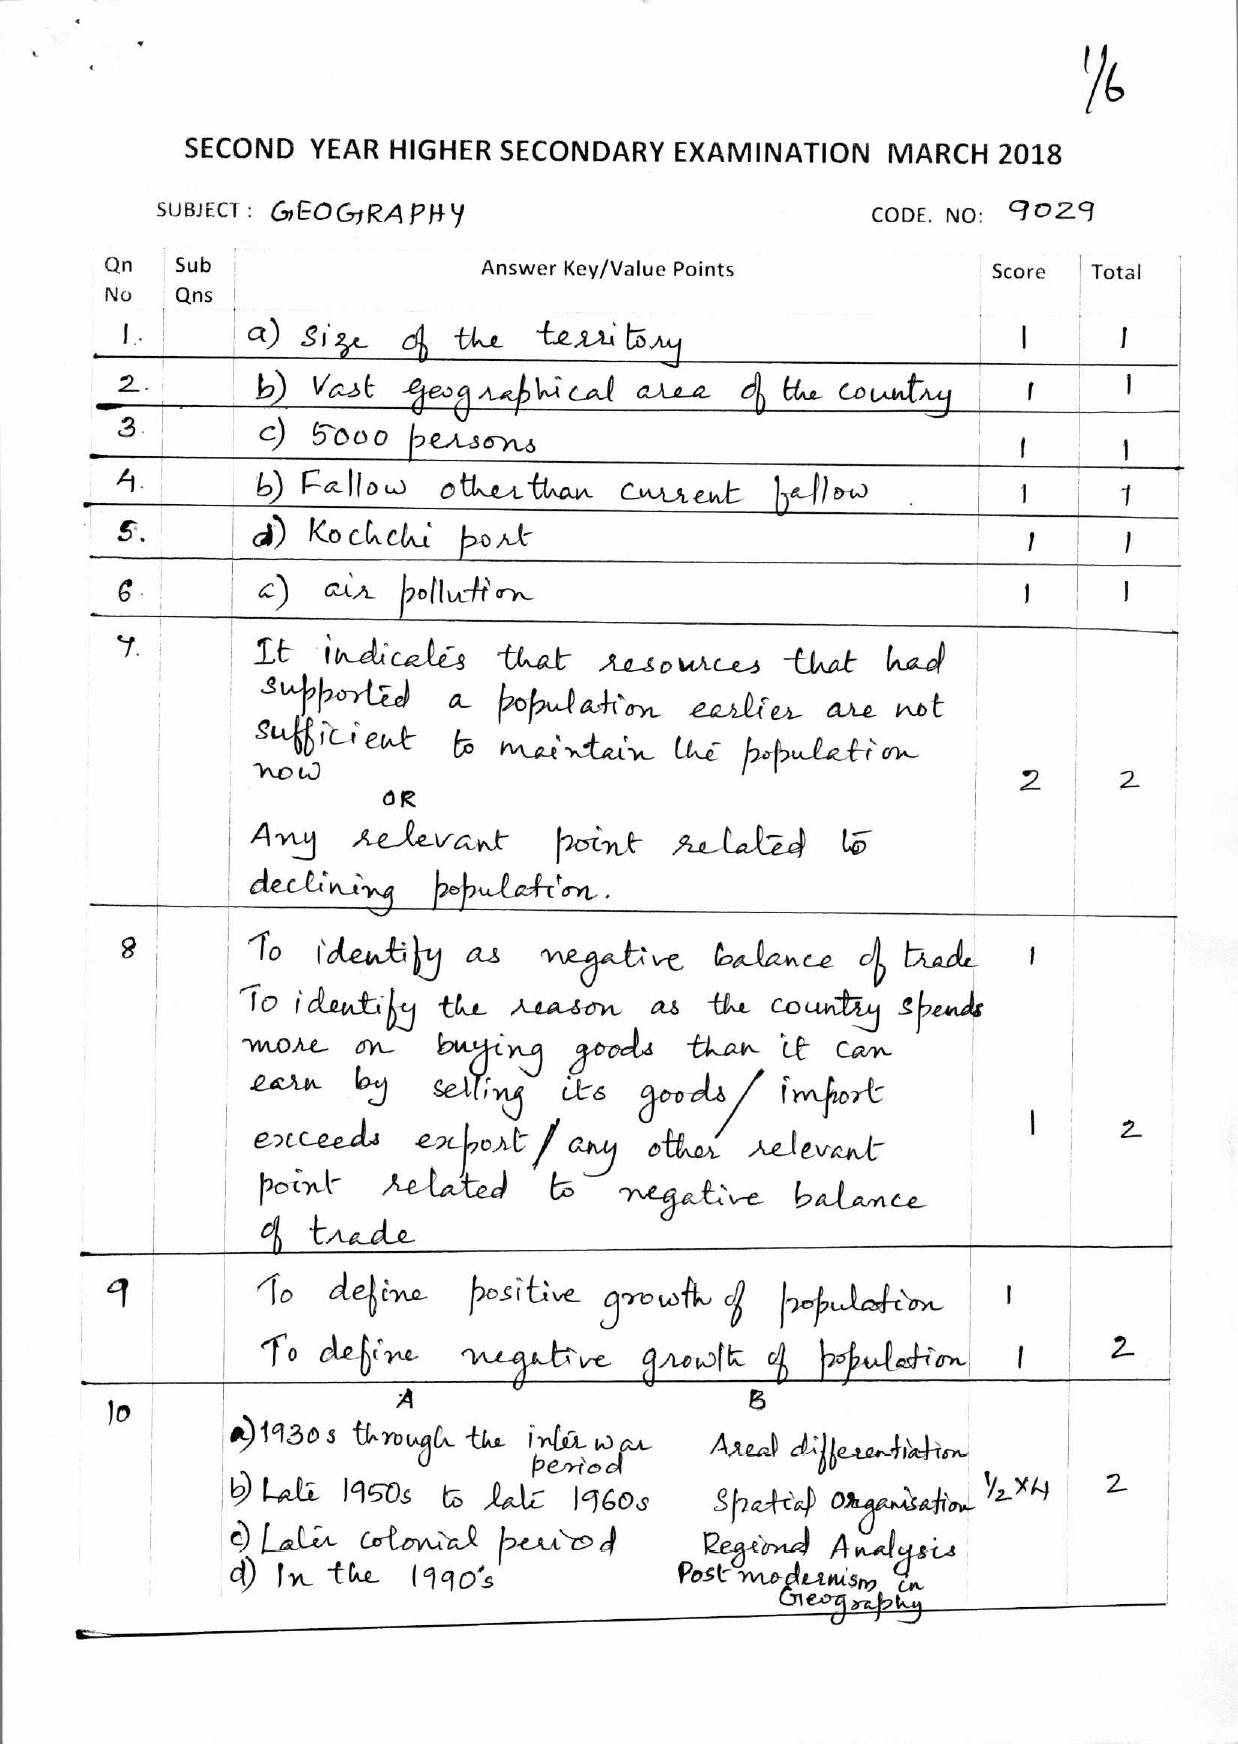 1/6
SECOND YEAR HIGHER SECONDARY EXAMINATION MARCH 2018
SUBJECT : GEOGRAPHY CODE. NO: 9029
Qn No Sub Qns Answer Key/Value Points Score Total
1. a) Size of the territory 1 1
2. b) Vast geographical area of the country 1 1
3. c) 5000 persons 1 1
4. b) Fallow other than current fallow 1 1
5. d) Kochchi port 1 1
6. c) air pollution 1 1
7. It indicates that resources that had
supported a population earlier are not
sufficient to maintain the population
now 2 2
OR
Any relevant point related to
declining population.
8 To identify as negative balance of trade 1
To identify the reason as the country spends
more on buying goods than it can
earn by selling its goods / import
exceeds export / any other relevant 1 2
point related to negative balance
of trade
9 To define positive growth of population 1
To define negative growth of population 1 2
10 A B
a) 1930s through the inter war period Areal differentiation
b) Late 1950s to late 1960s Spatial organisation 1/2 x 4 2
c) Later colonial period Regional Analysis
d) In the 1990's Post modernism in Geography